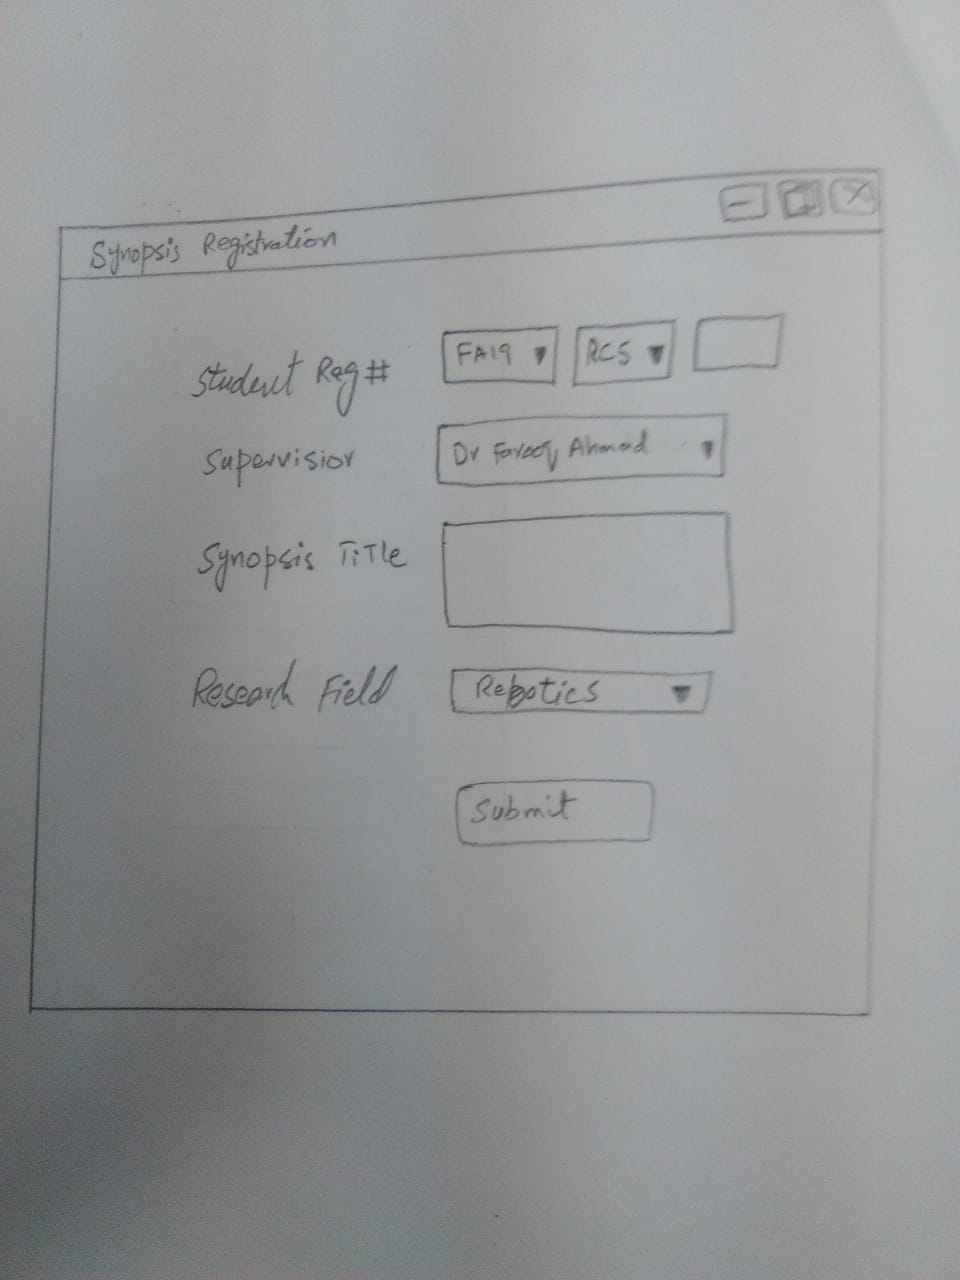 Synopsis Registration
Student Reg# FA19 RCS
Supervisior Dr Farooq Ahmad
Synopsis Title
Research Field Robotics
Submit